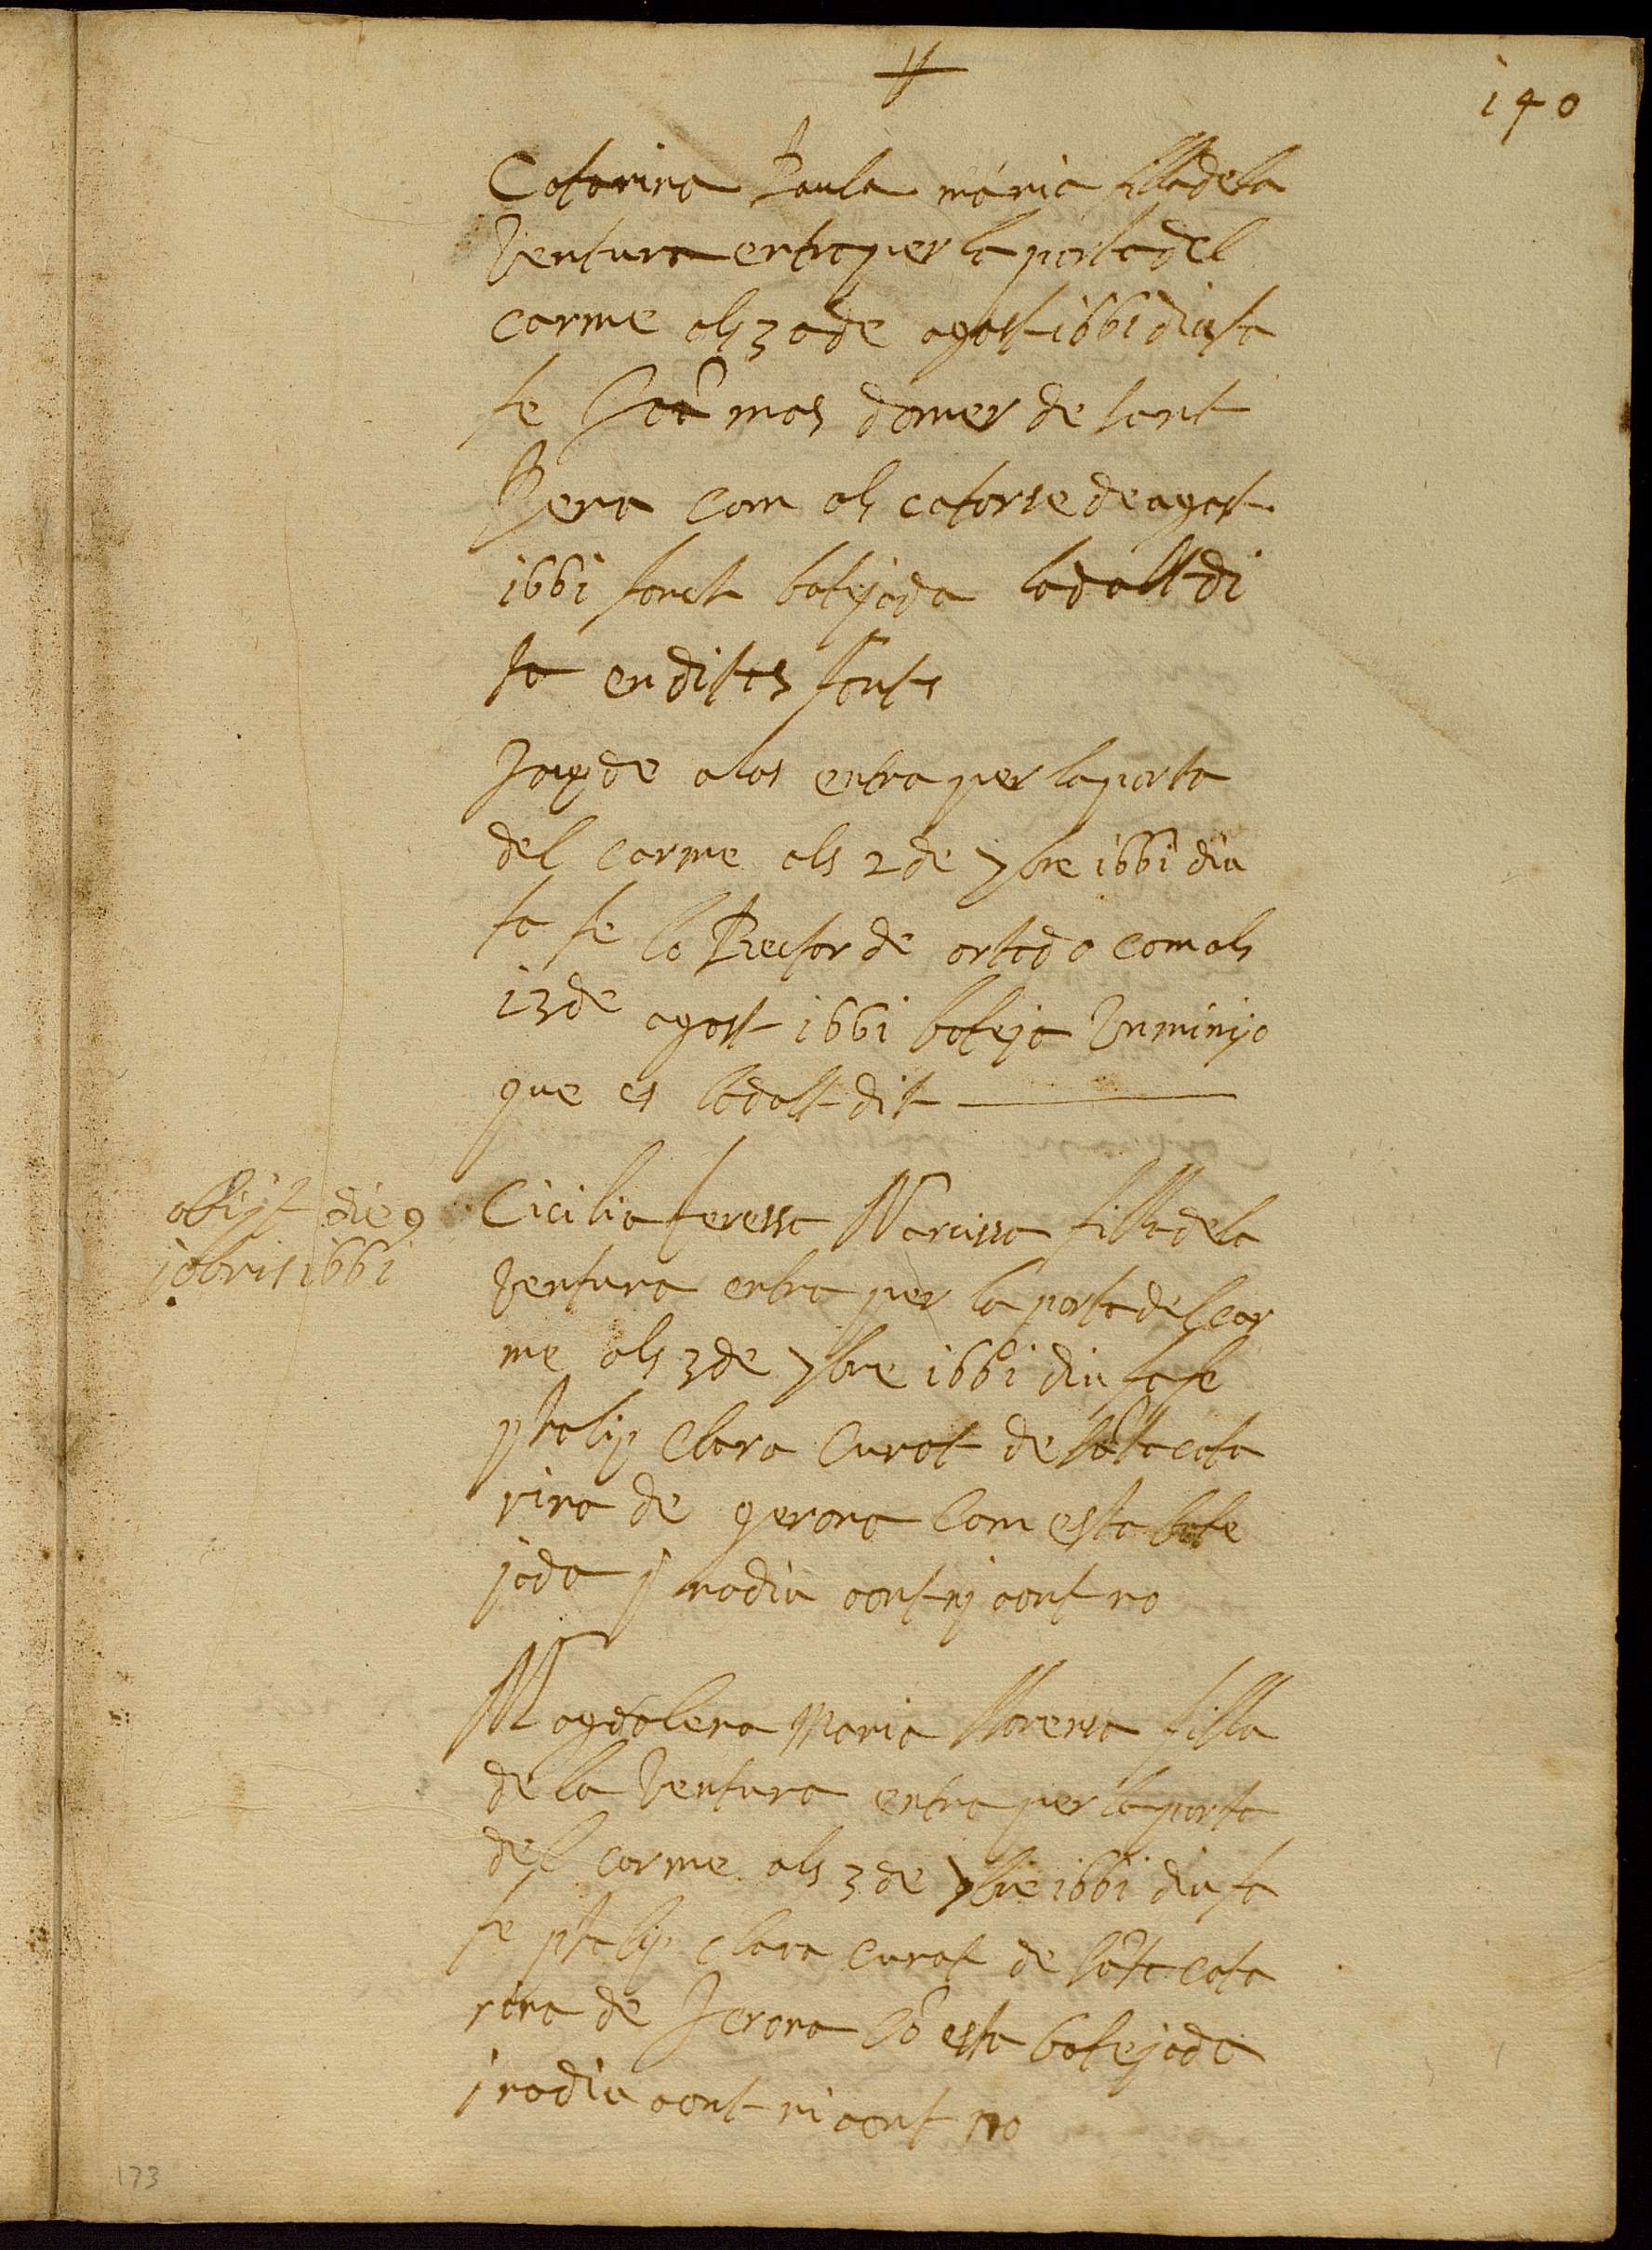 140
Catarina Paula maria filla de la
Ventura entra per la porta del
carme als 30 de agost 1661 diu ta
fe Joã mas domer de sant
Pera com als catorse de agost
1661 fonch batejada la dalt di
ta en dites fonts
de alos entra per la porta
del carme als 2 de 7bre 1661 diu
ta fe lo Rector de ortodo com als
13 de agost 1661 bateja Un minyo
que es lo dalt dit
obijt die 9
10bris 1661
Cicilia teressa Narcissa filla de la
Ventura entra per la porta del car
me als 3 de 7bre 1661 diu ta fe
phalip Clara Curat de sãta cata
rina de gerona Com esta bate
jada j no diu aont nj aont no
Magdalena Maria llorensa filla
de la Ventura entra per la porta
del carme als 3 de 7bre 1661 diu ta
fe phalip clara curat de sãta cata
rina de Jerona cõ esta batejada
j no diu aont ni aont no
173